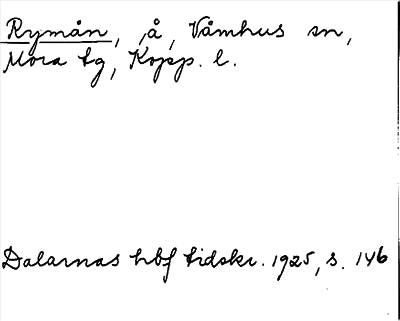 Rymån, å, Våmhus sn,
Mora tg, Kopp. l.
Dalarnas hbf tidskr. 1925, s. 146